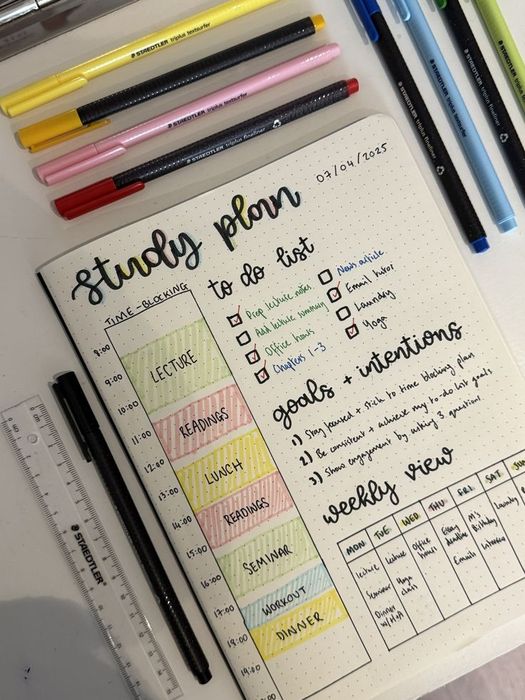 STAEDTLER triplus textsurfer
STAEDTLER triplus fineliner
STAEDTLER triplus textsurfer
STAEDTLER triplus fineliner
07/04/2025
study plan
TIME-BLOCKING
8:00
9:00
10:00
11:00
12:00
13:00
14:00
15:00
16:00
17:00
18:00
19:00
LECTURE
READINGS
LUNCH
READINGS
SEMINAR
WORKOUT
DINNER
to do list
Prep lecture notes
Add lecture summary
Office hours
Chapters 1-3
News article
Email tutor
Laundry
Yoga
goals + intentions
1) Stay focused + stick to time blocking plan
2) Be consistent + achieve my to-do list goals
3) Show engagement by asking 3 questions
weekly view
MON TUE WED THU FRI SAT
lecture
Seminar
Dinner
lecture
Yoga
class
Office
hours
Essay
deadline
Emails
M's
Birthday
Laundry
STAEDTLER